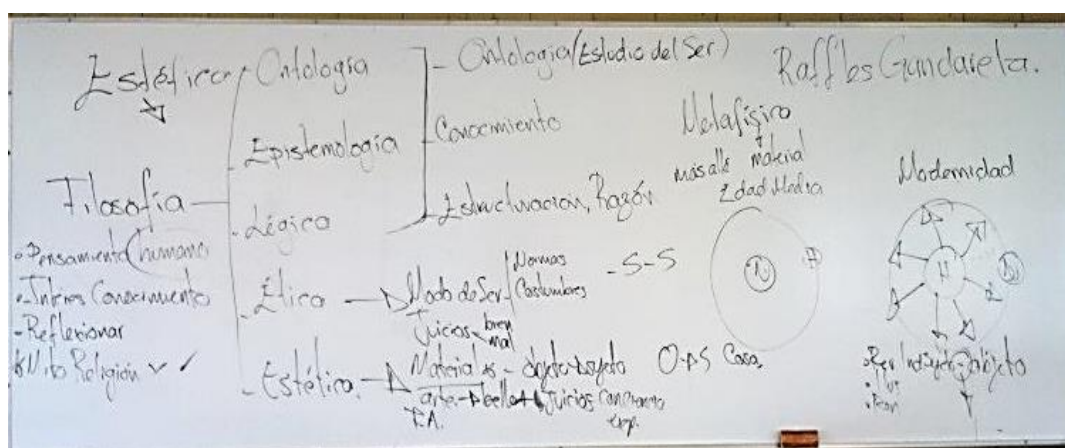 Estética
Filosofía
• Pensamiento (humano
• Interes Conocimiento
- Reflexionar
Mito Religión
Ontología
- Epistemología
- Lógica
- Ética
- Estética
- Ontologia (Estudio del Ser)
Conocimiento
Estructuración, Razón
Modo de Ser
Normas
Costumbres
- S-S
Juicios bien
mal
Materiales - objeto - sujeto
O S Cosa,
arte bello Juicios
Raffles Gandarela.
Metafísico
más alla material
Edad Media
Modernidad
H
objeto